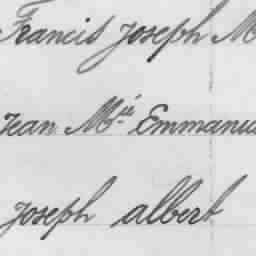 Francis Joseph M
Jean Mie Emmanu
Joseph Albert